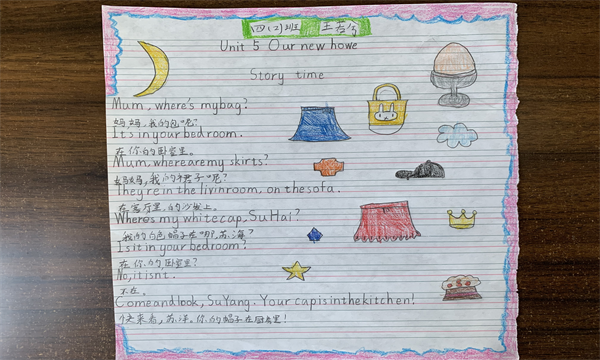 四(2)班 王若兮
Unit 5 Our new howe
Story time
Mum, where's my bag?
妈妈,我的包呢?
It's in your bedroom.
在你的卧室里。
Mum, where are my skirts?
妈妈,我的裙子呢?
They're in the livinroom, on the sofa.
在客厅里的沙发上。
Where's my white cap, Su Hai?
我的白色帽子在哪,苏海?
Is it in your bedroom?
在你的卧室里?
No, it isn't.
不在。
Come and look, Su Yang. Your cap is in the kitchen!
快来看,苏洋。你的帽子在厨房里!